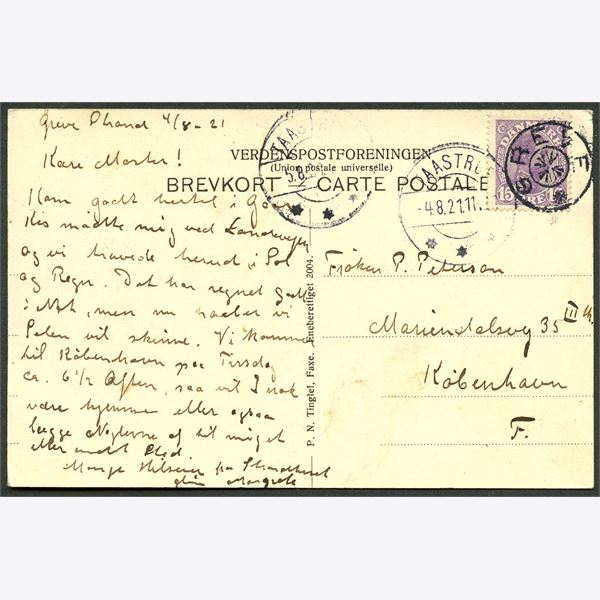 Greve Strand 4/8-21
Kære Moster!
Kom godt hertil i Gaar
Kis mødte mig ved Landevejen
og vi travede herud i Sol
og Regn. Det har regnet godt
i Nat, men nu haaber vi
Solen vil skinne. Vi kommer
til København paa Tirsdag
ca. 6 1/2 Aften, saa vil I nok
være hjemme eller ogsaa
lægge Nøglerne af til mig et
eller andet Sted
Mange Hilsener fra Strandhuset
din Margrete
VERDENSPOSTFORENINGEN
(Union postale universelle)
BREVKORT - CARTE POSTALE
P. N. Tinglef, Faxe. Eneberettiget 2004.
TAASTRUP
AASTRUP
4.8.21.11.
DANMARK
15
ØRE
GREVE
Frøken P. Petersen
Mariendalsvej 35 III th.
København
F.